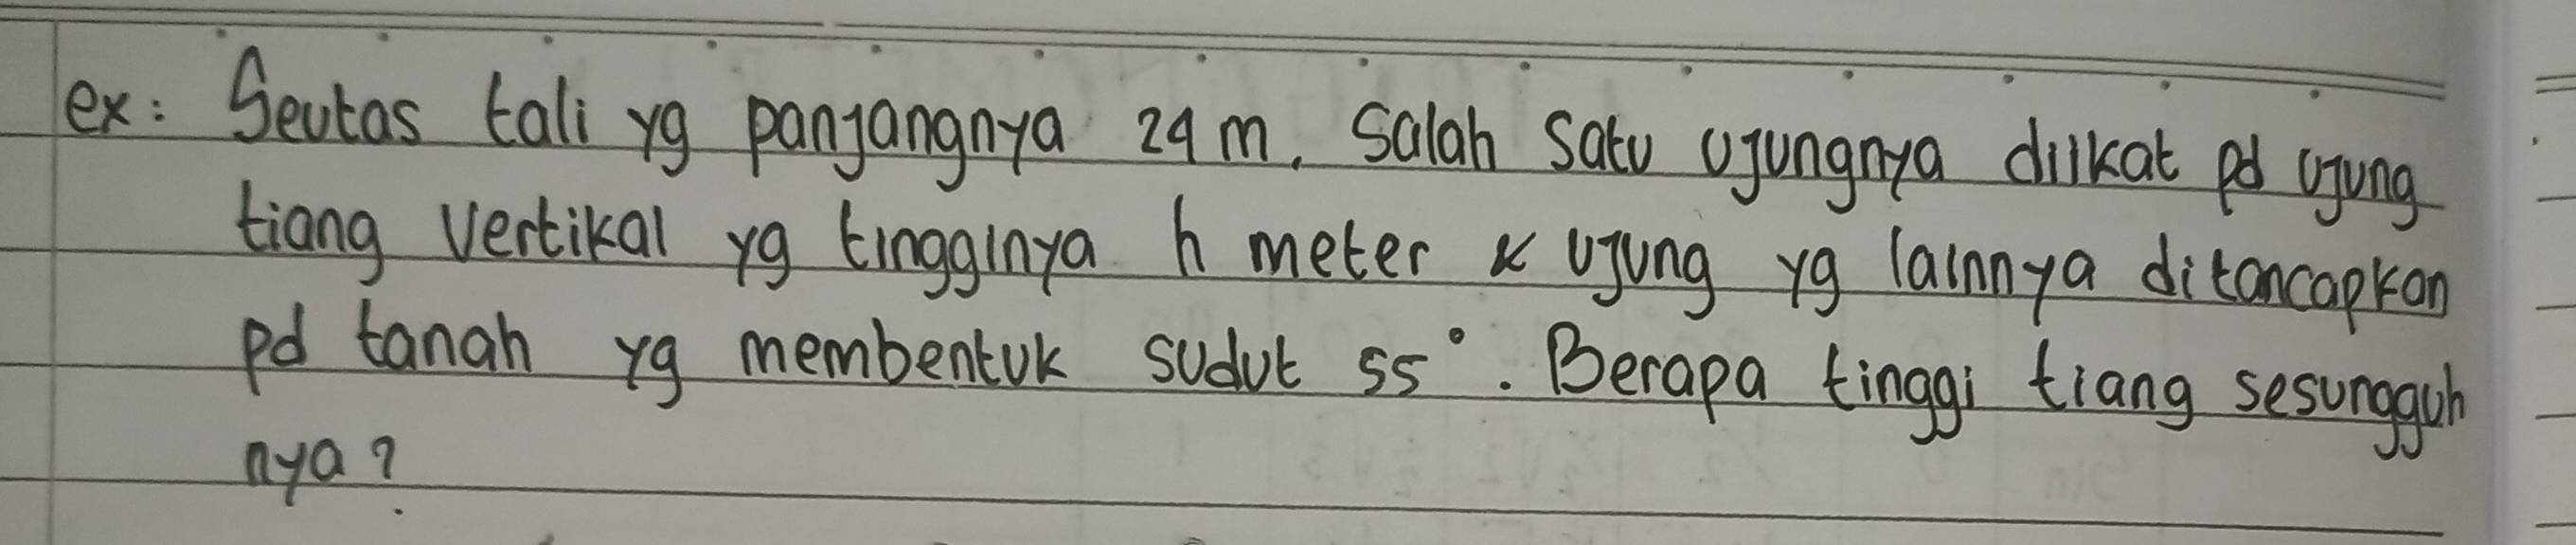 ex: Seutas tali yg panjangnya 24 m. Salah satu ujungnya diikat pd ujung
tiang vertikal yg tingginya h meter & ujung yg lainnya ditancapkan
pd tanah yg membentuk sudut 55°. Berapa tinggi tiang sesungguh
nya?